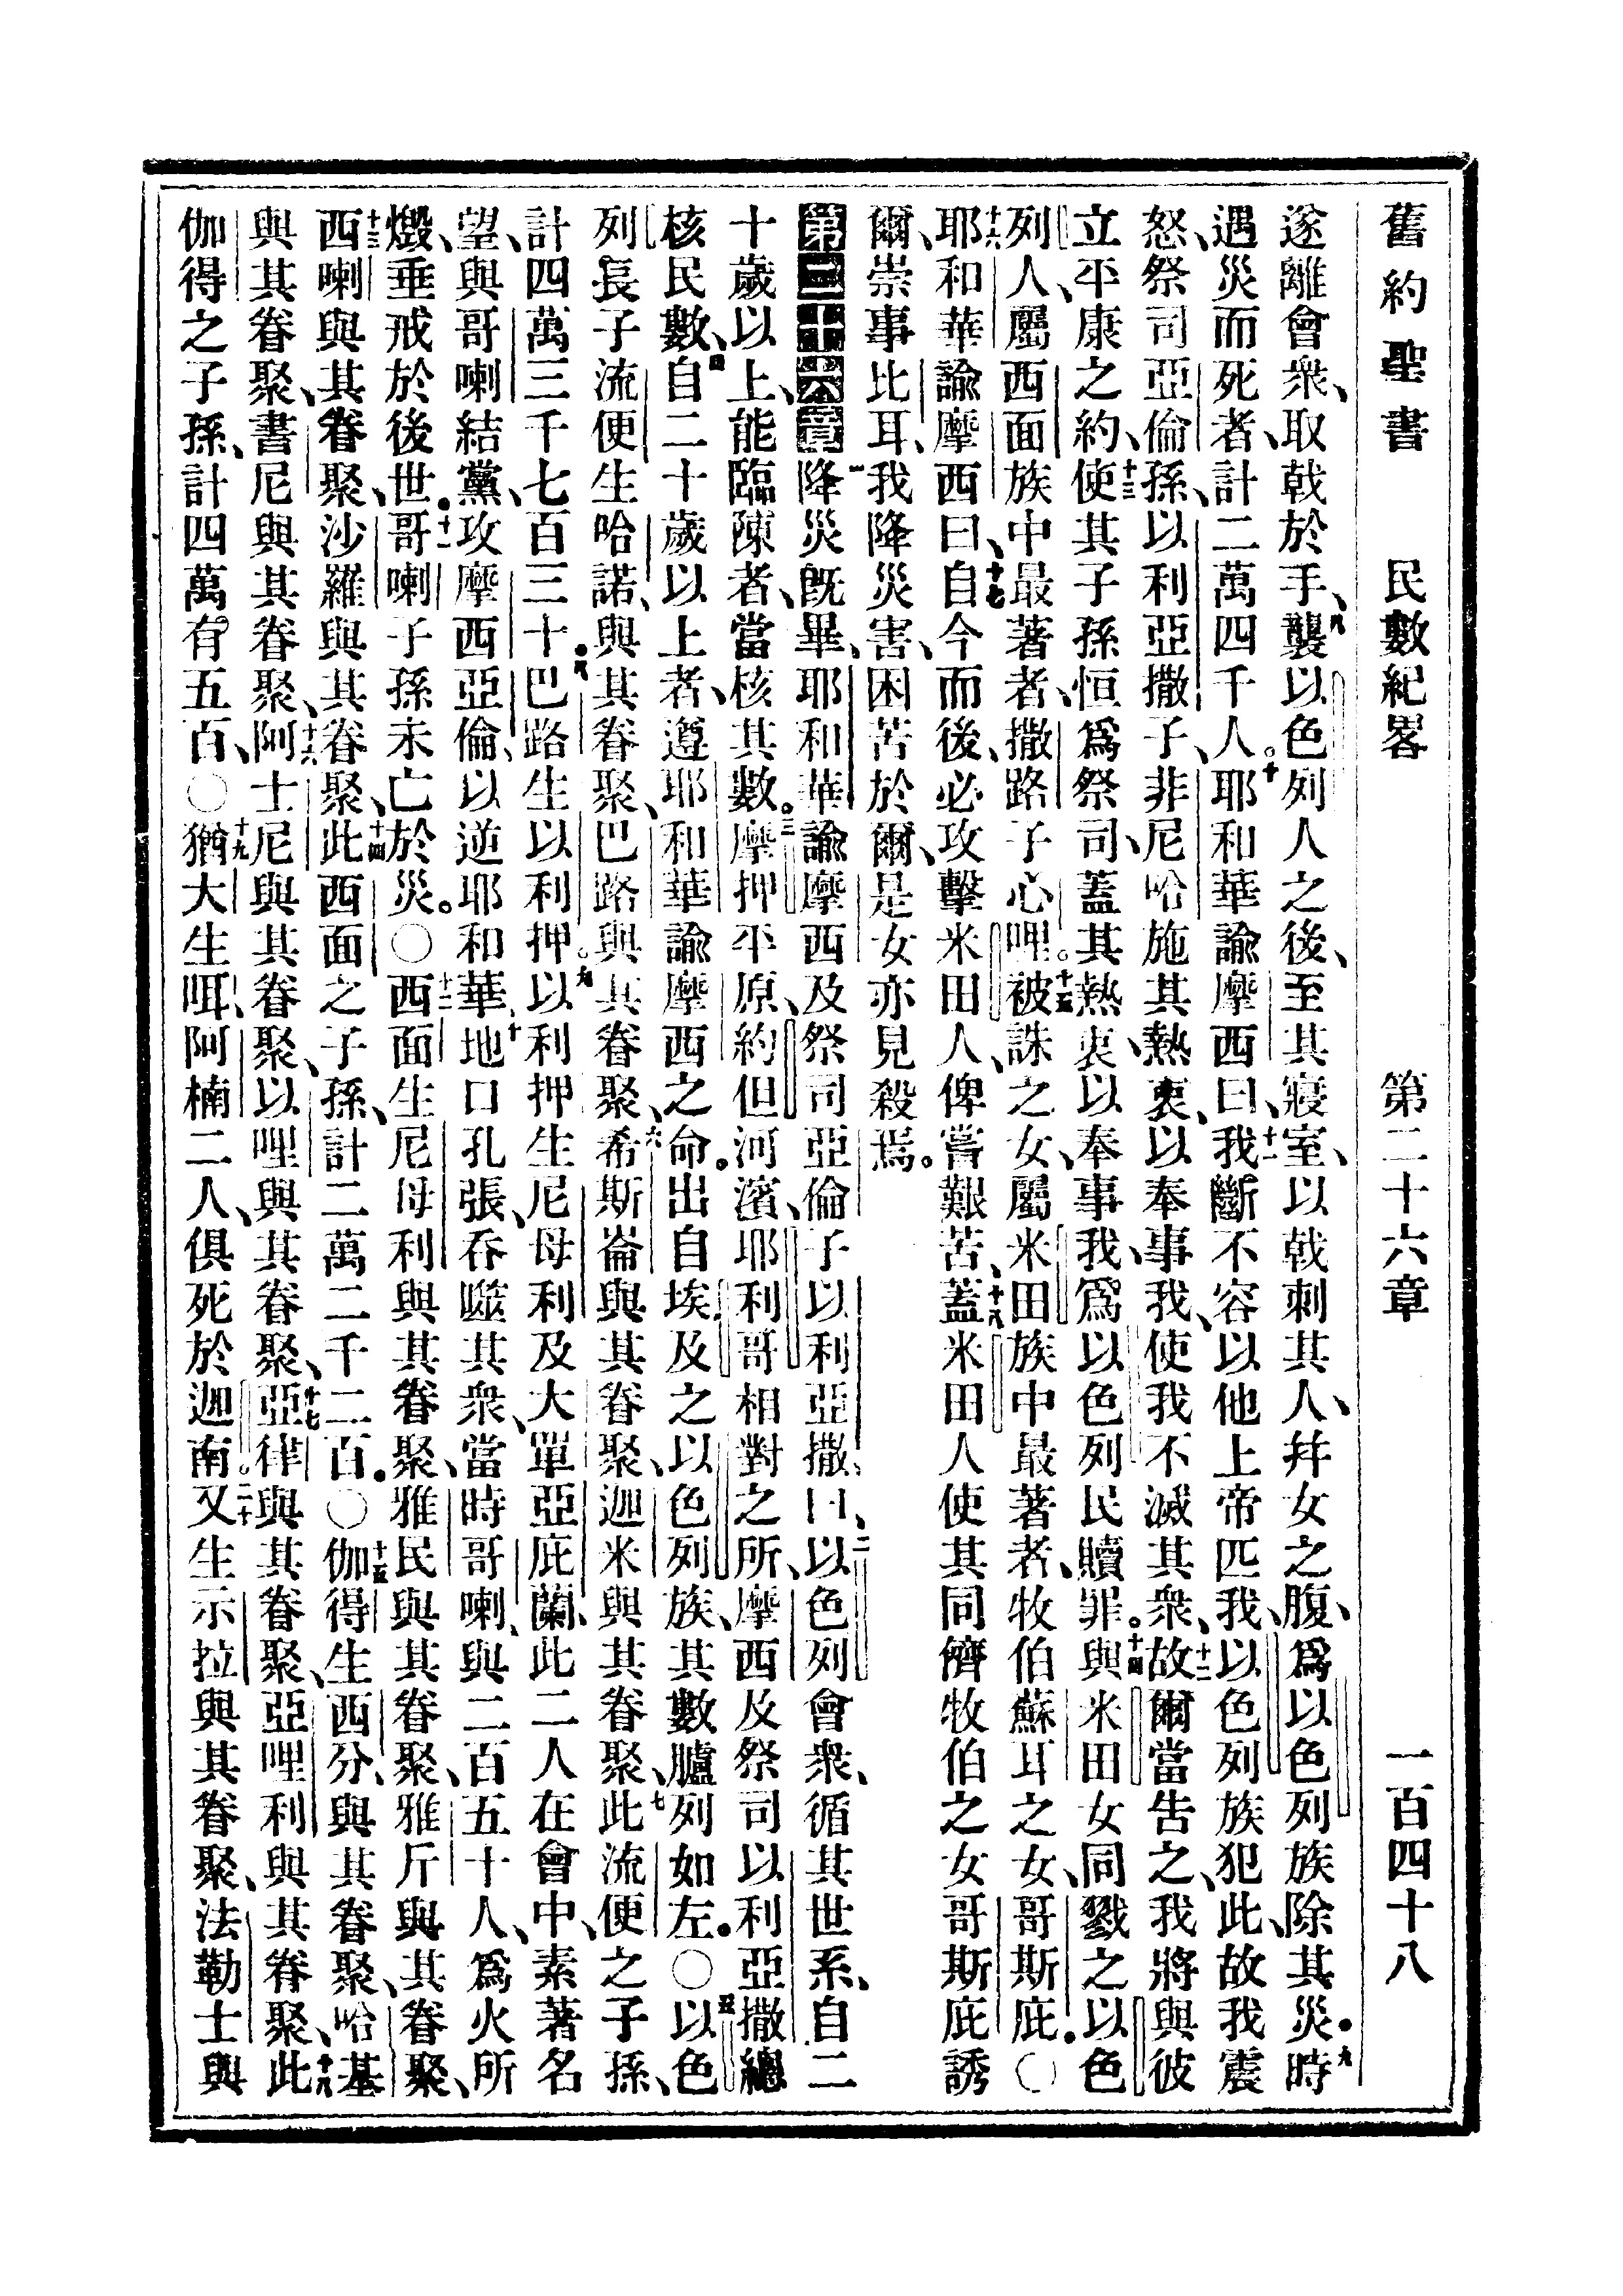 舊約聖書　民數紀畧　第二十六章　一百四十八
遂離會衆、取戟於手、八襲以色列人之後、至其寢室、以戟刺其人、幷女之腹、爲以色列族除其災。九時
遇災而死者、計二萬四千人。十耶和華諭摩西曰、十一我斷不容以他上帝匹我、以色列族犯此、故我震
怒、祭司亞倫孫、以利亞撒子、非尼哈施其熱衷、以奉事我、使我不滅其衆、十二故爾當告之、我將與彼
立平康之約、十三使其子孫恒爲祭司、蓋其熱衷、以奉事我、爲以色列民贖罪。十四與米田女同戮之以色
列人、屬西面族中最著者、撒路子心哩。十五被誅之女、屬米田族中最著者、牧伯蘇耳之女、哥斯庇。〇
十六耶和華諭摩西曰、十七自今而後、必攻擊米田人、俾嘗艱苦、十八蓋米田人使其同儕牧伯之女哥斯庇誘
爾、崇事比耳、我降災害、困苦於爾、是女亦見殺焉。
第二十六章一降災旣畢、耶和華諭摩西及祭司亞倫子以利亞撒、曰、二以色列會衆、循其世系、自二
十歲以上、能臨陳者、當核其數。三摩押平原、約但河濱、耶利哥相對之所、摩西及祭司以利亞撒總
核民數、四自二十歲以上者、遵耶和華諭摩西之命。出自埃及之以色列族、其數臚列如左。〇五以色
列長子流便生哈諾、與其眷聚、巴路與其眷聚、六希斯崙與其眷聚、迦米與其眷聚、七此流便之子孫、
計四萬三千七百三十。八巴路生以利押。九以利押生尼母利及大單亞庇蘭、此二人在會中、素著名
望、與哥喇結黨、攻摩西亞倫、以逆耶和華、十地口孔張、吞噬其衆、當時哥喇、與二百五十人、爲火所
燬、垂戒於後世。十一哥喇子孫未亡於災。〇十二西面生尼母利與其眷聚、雅民與其眷聚、雅斤與其眷聚、
十三西喇與其眷聚、沙羅與其眷聚、十四此西面之子孫、計二萬二千二百。〇十五伽得生西分、與其眷聚、哈基
與其眷聚、書尼與其眷聚、十六阿士尼與其眷聚、以哩與其眷聚、十七亞律與其眷聚、亞哩利與其眷聚、十八此
伽得之子孫、計四萬有五百、〇十九猶大生咡、阿楠二人、俱死於迦南。二十又生示拉與其眷聚、法勒士與